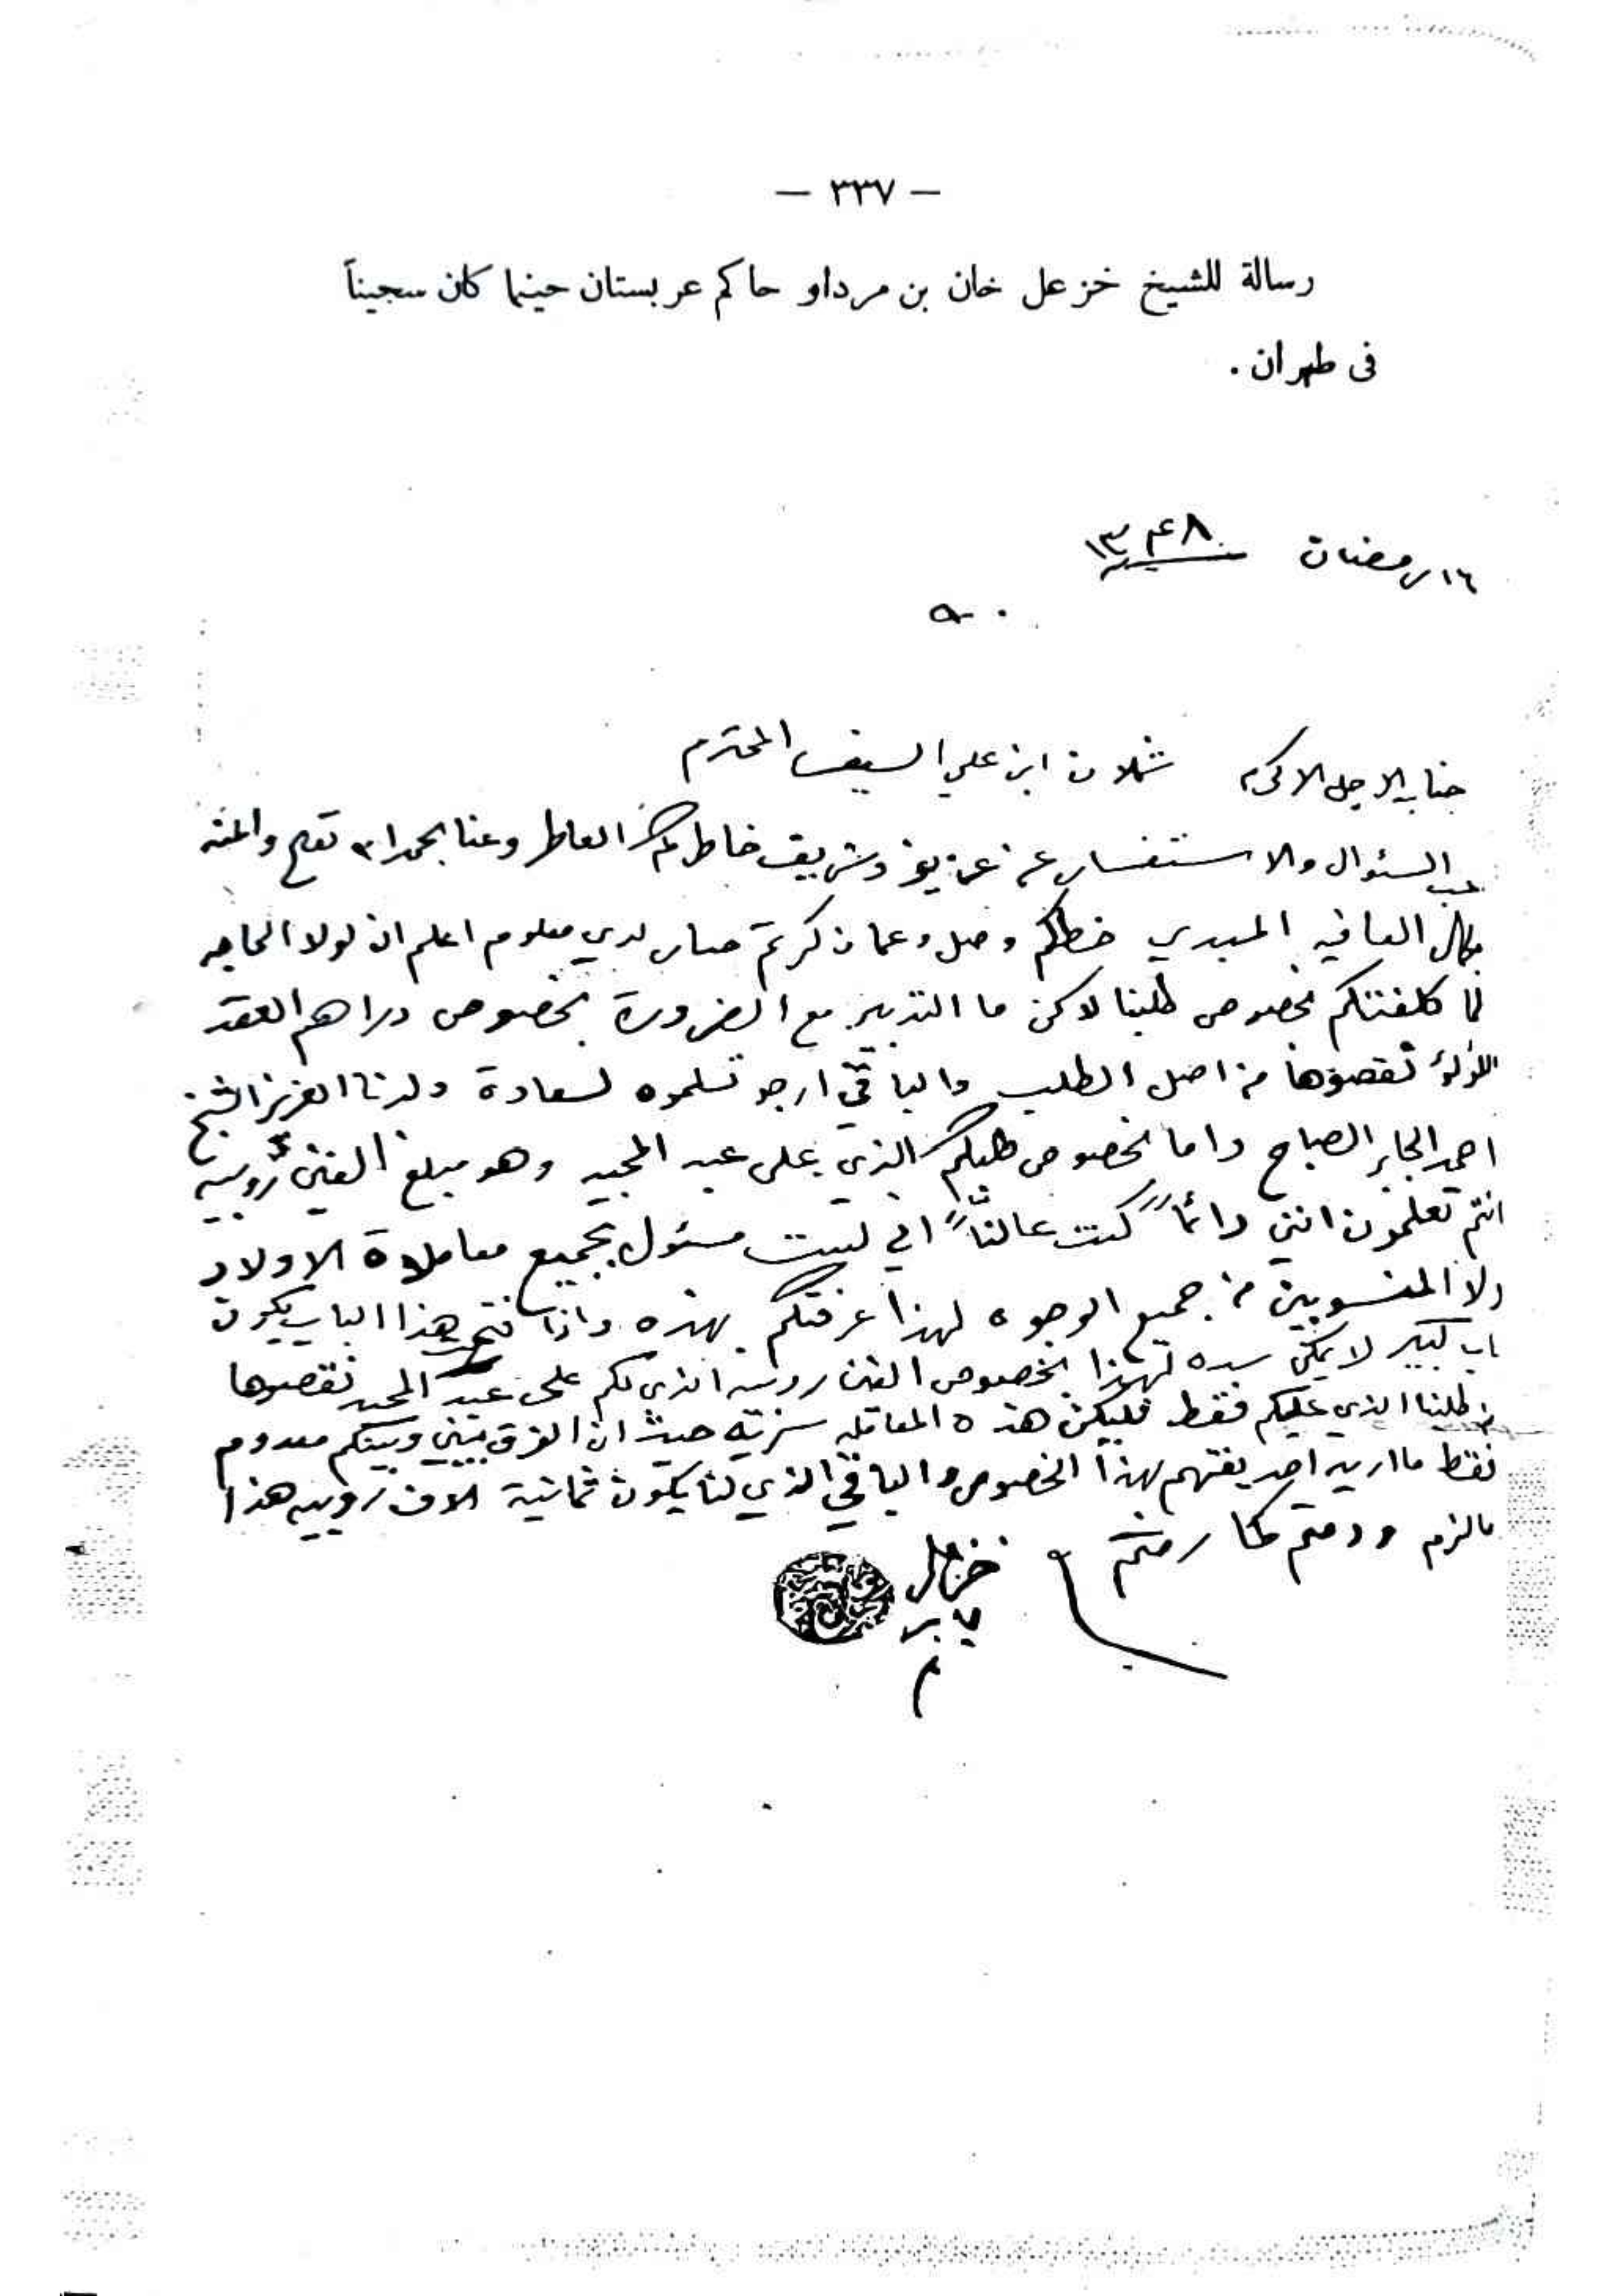 — ٣٣٧ —
رسالة للشيخ خزعل خان بن مرداو حاكم عربستان حينما كان سجيناً
فى طهران .
١٦ رمضان ١٣٤٨
جناب الاجل الاكرم شملان ابن علي السيف المحترم
غب السئوال والاستفسار عن عزيز وشريف خاطركم العاطر وعنا بحمد الله تعالى والمنه
بكمال العافيه المبدي خطكم وصل وعما ذكرتم صار لدي معلوم اعلم ان لولا الحاجه
لما كلفتكم بخصوص طلبنا لاكن ما التدبير مع الضرورة بخصوص دراهم العقد
اللؤلؤ تقصوها من اصل الطلب والباقي ارجو تسلموه لسعادة ولدنا العزيز الشيخ
احمد الجابر الصباح واما بخصوص طلبكم الذي على عبد المجيد وهو مبلغ الفين روبيه
انتم تعلمون انني دائماً كنت اني لست مسئول بجميع معاملاة الاولاد
ولا المنسوبين من جميع الوجوه لهذا عرفتكم بهذه واذا فتح هذا الباب يكون
باب كبير لا يمكن سده لهذا بخصوص الفين روبيه الذي لكم على عبد المجيد تقصوها
من طلبنا الذي عليكم فقط فليكن هذه سريه حيث ان الفرق بيني وبينكم معدوم
فقط ما اريد احد يفتهم بهذا الخصوص والباقي الذي لنا يكون ثمانية الاف روبيه هذا
مالزم ودمتم كما رمتم
خزعل